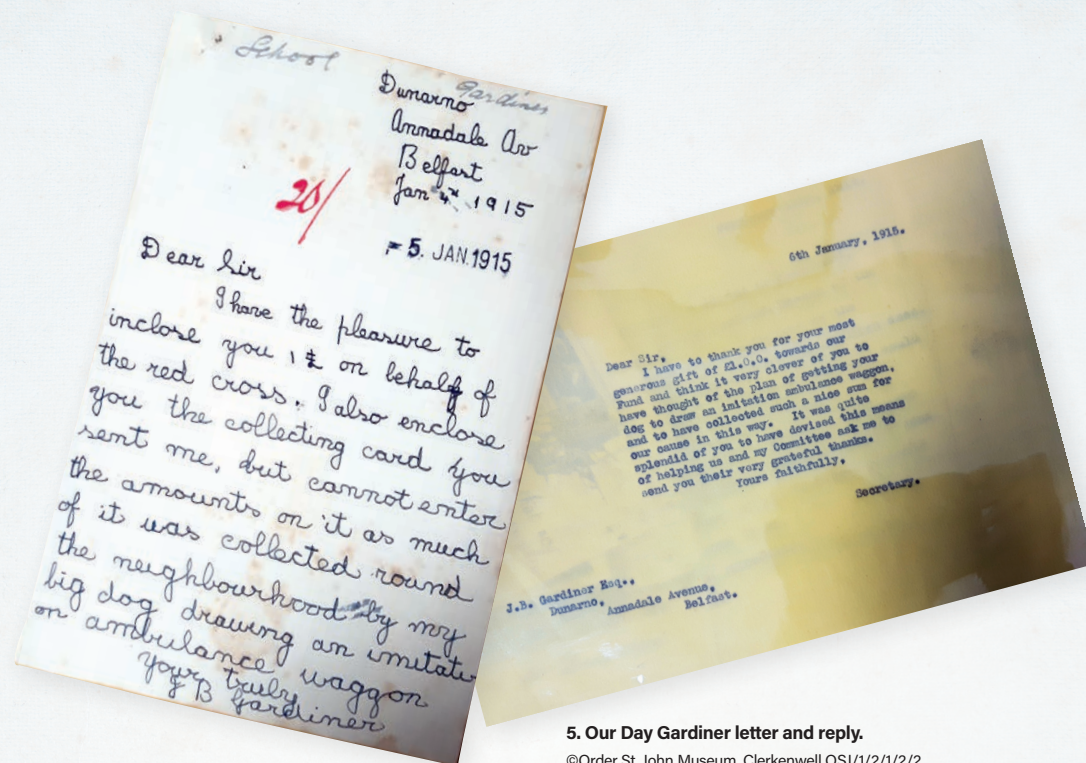 School
Gardiner
Dunarno
Annadale Av
Belfast
Jan 4th 1915
20/
5. JAN.1915
Dear Sir
I have the pleasure to
inclose you 1£ on behalf of
the red cross. I also enclose
you the collecting card you
sent me, but cannot enter
the amounts on it as much
of it was collected round
the neighbourhood by my
big dog drawing an imitate
on ambulance waggon
your truly
J B Gardiner
6th January, 1915.
Dear Sir,
I have to thank you for your most
generous gift of £1.0.0. towards our
Fund and think it very clever of you to
have thought of the plan of getting your
dog to draw an imitation ambulance waggon,
and to have collected such a nice sum for
our cause in this way. It was quite
splendid of you to have devised this means
of helping us and my Committee ask me to
send you their very grateful thanks.
Yours faithfully,
Secretary.
J.B. Gardiner Esq.,
Dunarno,
Annadale Avenue,
Belfast.
5. Our Day Gardiner letter and reply.
©Order St John Museum, Clerkenwell OSJ/1/2/1/2/2